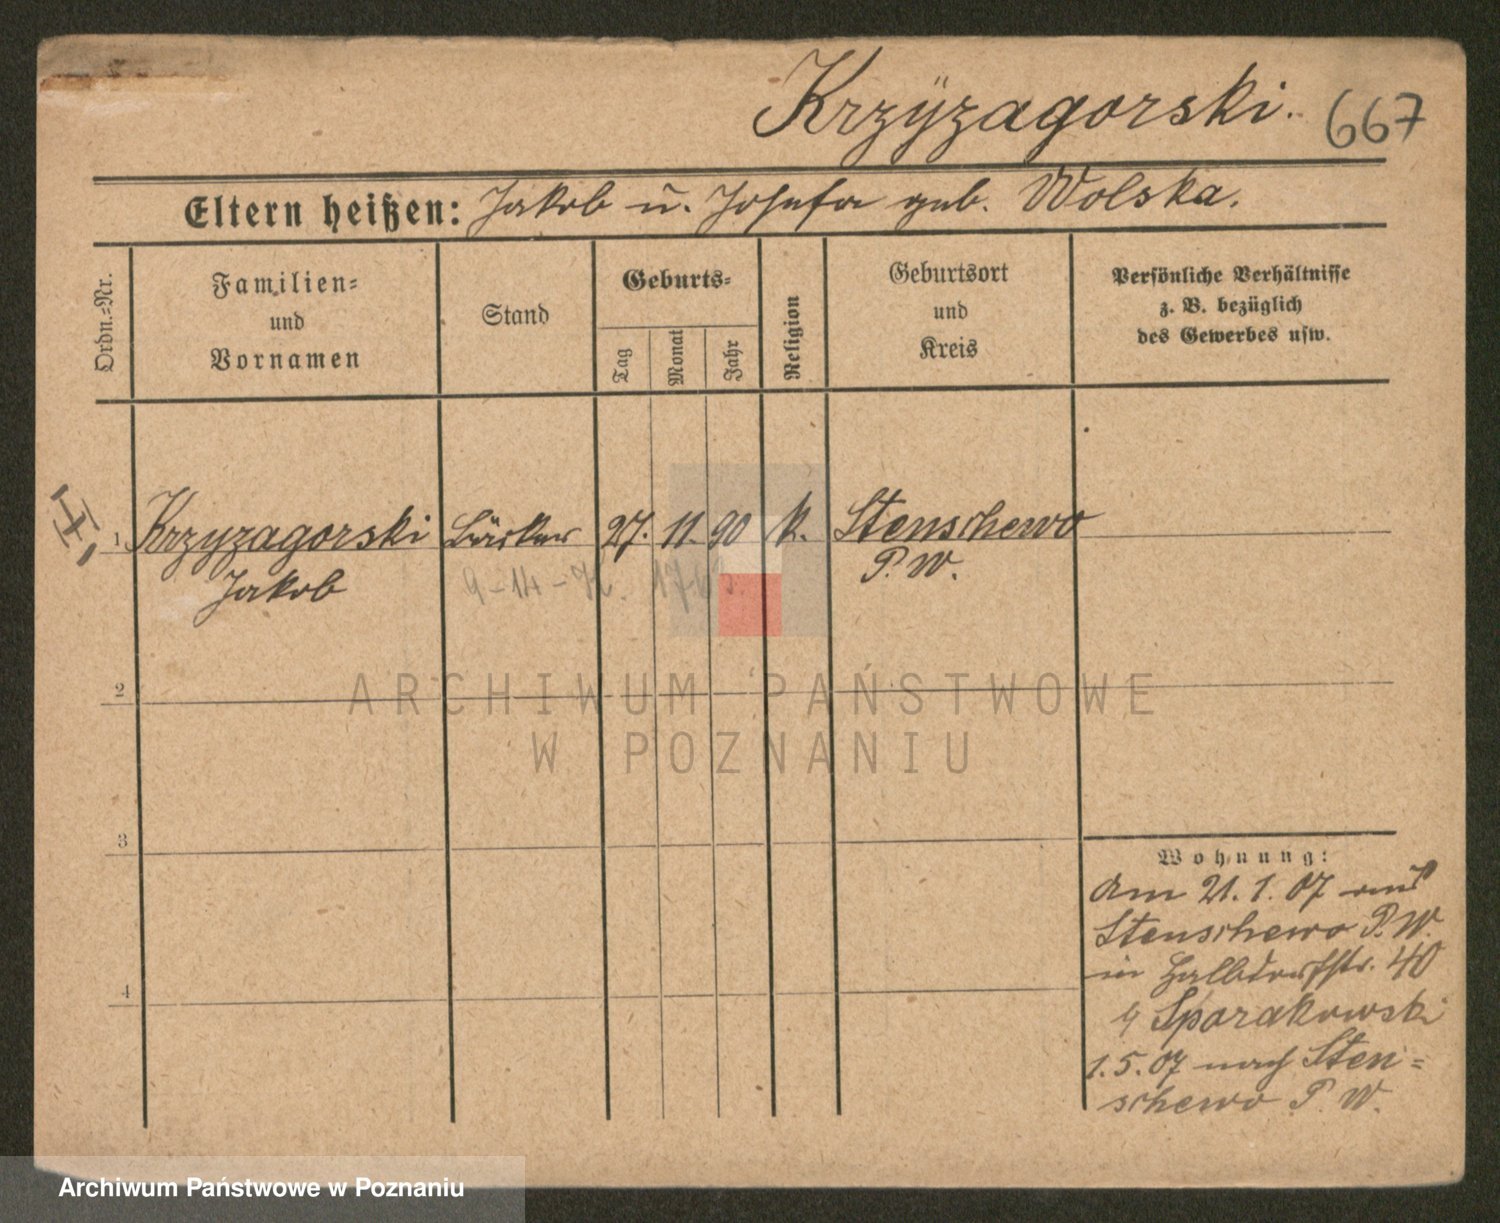 Krzyzagorski. 667
Eltern heißen: Jakob u. Josefa geb. Wolska.
Ordn.-Nr.
Familien-
und
Vornamen
Stand
Geburts-
Tag
Monat
Jahr
Religion
Geburtsort
und
Kreis
Persönliche Verhältnisse
z. B. bezüglich
des Gewerbes usw.
1 Krzyzagorski Bäcker 27. 11. 90 k. Stenschewo
Jakob P. W.
9-14-
2
ARCHIWUM PAŃSTWOWE
W POZNANIU
3
Wohnung:
Am 21. 1. 07 aus
Stenschewo P. W.
in Halbdorfstr. 40
Sporakowski
1. 5. 07 nach Sten=
schewo P. W.
4
Archiwum Państwowe w Poznaniu